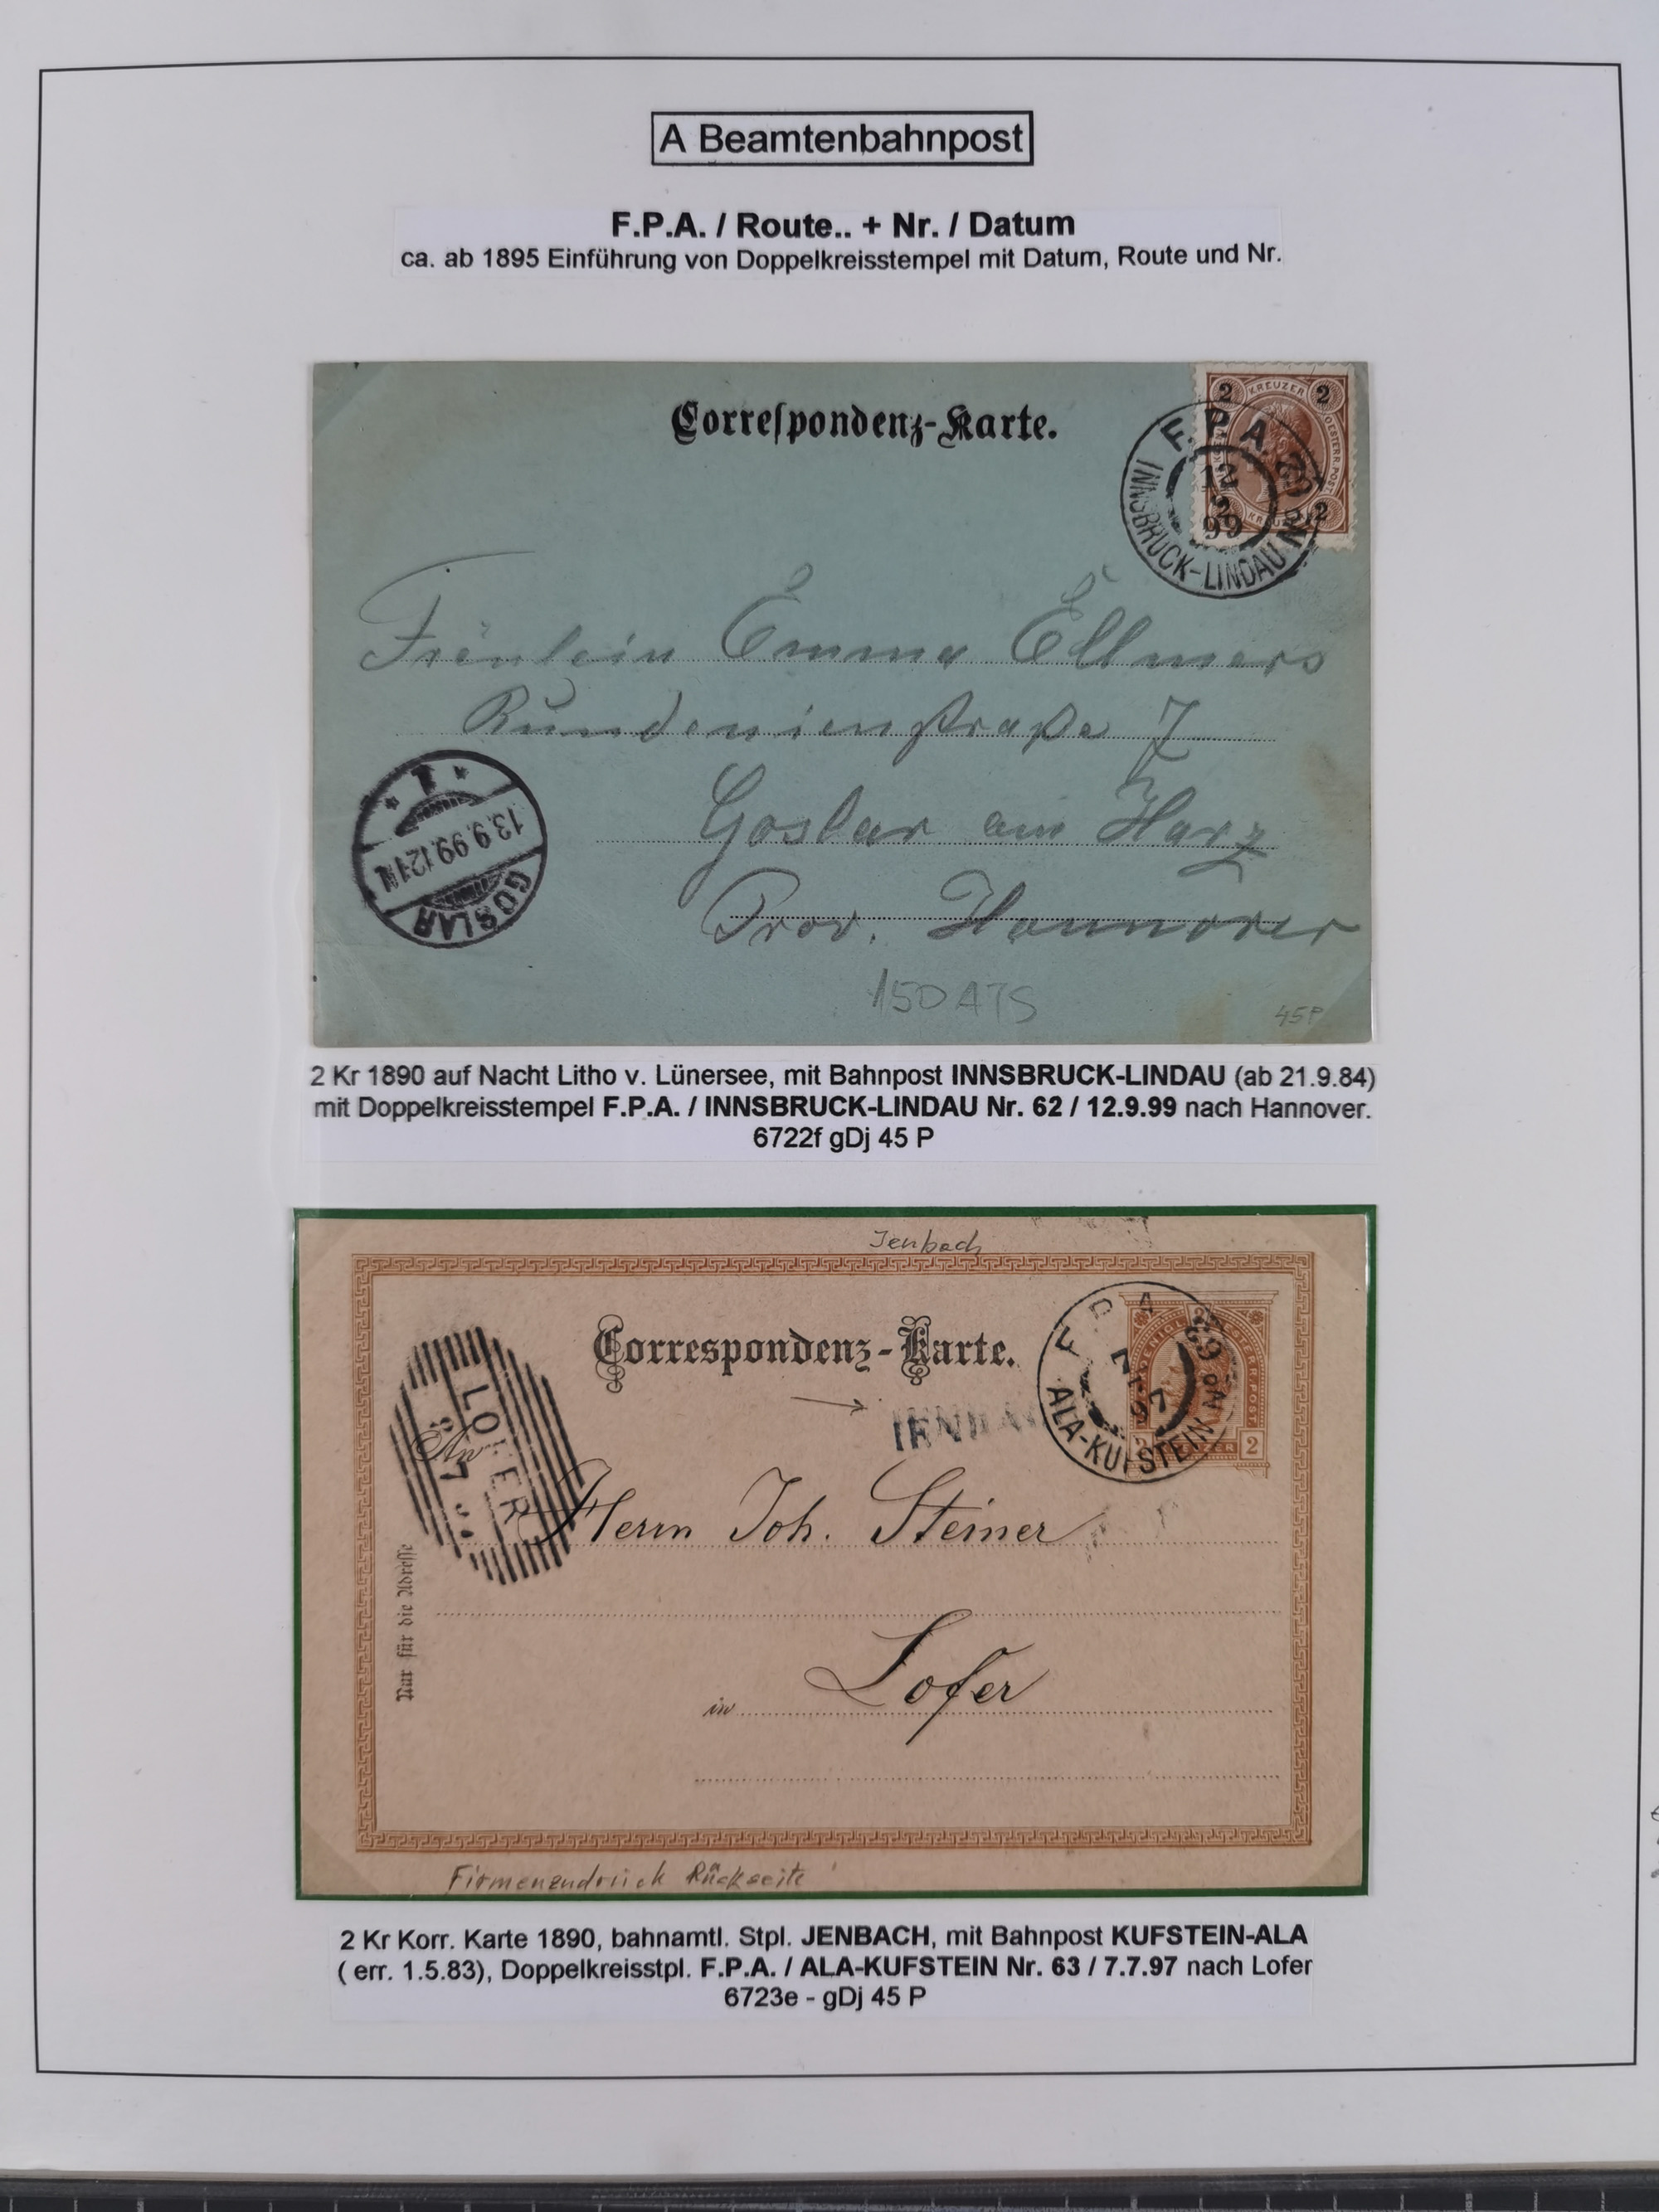 A Beamtenbahnpost
F.P.A. / Route.. + Nr. / Datum
ca. ab 1895 Einführung von Doppelkreisstempel mit Datum, Route und Nr.
Correspondenz-Karte.
2 KREUZER 2
F. P. A.
12
9
99
INNSBRUCK-LINDAU Nº 62
Fräulein Emma Ellmers
straße 7
Goslar am Harz
Prov. Hannover
* 1 *
13.9.99.12-1N
GOSLAR
150 ATS
45P
2 Kr 1890 auf Nacht Litho v. Lünersee, mit Bahnpost INNSBRUCK-LINDAU (ab 21.9.84)
mit Doppelkreisstempel F.P.A. / INNSBRUCK-LINDAU Nr. 62 / 12.9.99 nach Hannover.
6722f gDj 45 P
Jenbach
Correspondenz-Karte.
F P A
7
7
97
ALA-KUFSTEIN Nº 63
2
LOFER
An
Herrn Joh. Steiner
Nur für die Adresse
in Lofer
Firmenzudruck Rückseite
2 Kr Korr. Karte 1890, bahnamtl. Stpl. JENBACH, mit Bahnpost KUFSTEIN-ALA
( err. 1.5.83), Doppelkreisstpl. F.P.A. / ALA-KUFSTEIN Nr. 63 / 7.7.97 nach Lofer
6723e - gDj 45 P